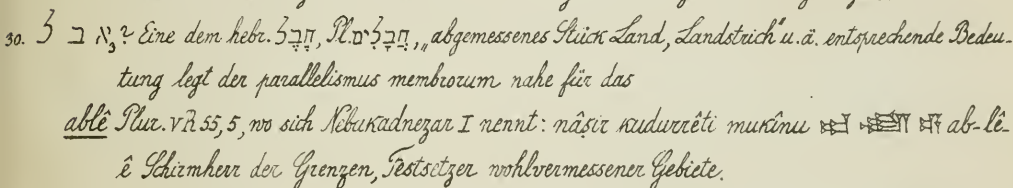 30. א₃ ב ל? Eine dem hebr. חֶבֶל, Pl. חֲבָלִים, „abgemessenes Stück Land, Landstrich" u. ä. entsprechende Bedeu-
tung legt der parallelismus membrorum nahe für das
ablê Plur. VR 55, 5, wo sich Nebukadnezar I nennt: nâṣir kudurrêti mukînu ab-lê-
ê Schirmherr der Grenzen, Festsetzer wohlvermessener Gebiete.